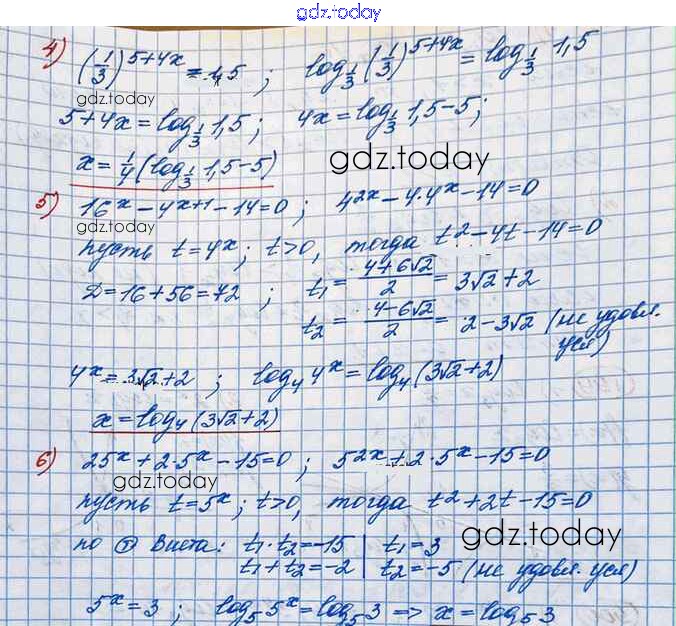 gdz.today
4) (1/3)^(5+4x) = 1,5 ; log_(1/3) (1/3)^(5+4x) = log_(1/3) 1,5
gdz.today
5+4x = log_(1/3) 1,5 ; 4x = log_(1/3) 1,5-5;
x = 1/4 (log_(1/3) 1,5-5)
gdz.today
5) 16^x - 4^(x+1) - 14 = 0 ; 4^(2x) - 4·4^x - 14 = 0
gdz.today
пусть t = 4^x ; t>0, тогда t² - 4t - 14 = 0
D = 16 + 56 = 72 ; t₁ = (4+6√2)/2 = 3√2 + 2
t₂ = (4-6√2)/2 = 2 - 3√2 (не удовл.
усл)
4^x = 3√2 + 2 ; log₄ 4^x = log₄ (3√2 + 2)
x = log₄ (3√2 + 2)
6) 25^x + 2·5^x - 15 = 0 ; 5^(2x) + 2·5^x - 15 = 0
gdz.today
пусть t = 5^x ; t>0, тогда t² + 2t - 15 = 0
по Ⓣ Виета: t₁·t₂ = -15 | t₁ = 3
gdz.today
t₁ + t₂ = -2 | t₂ = -5 (не удовл. усл)
5^x = 3 ; log₅ 5^x = log₅ 3 => x = log₅ 3